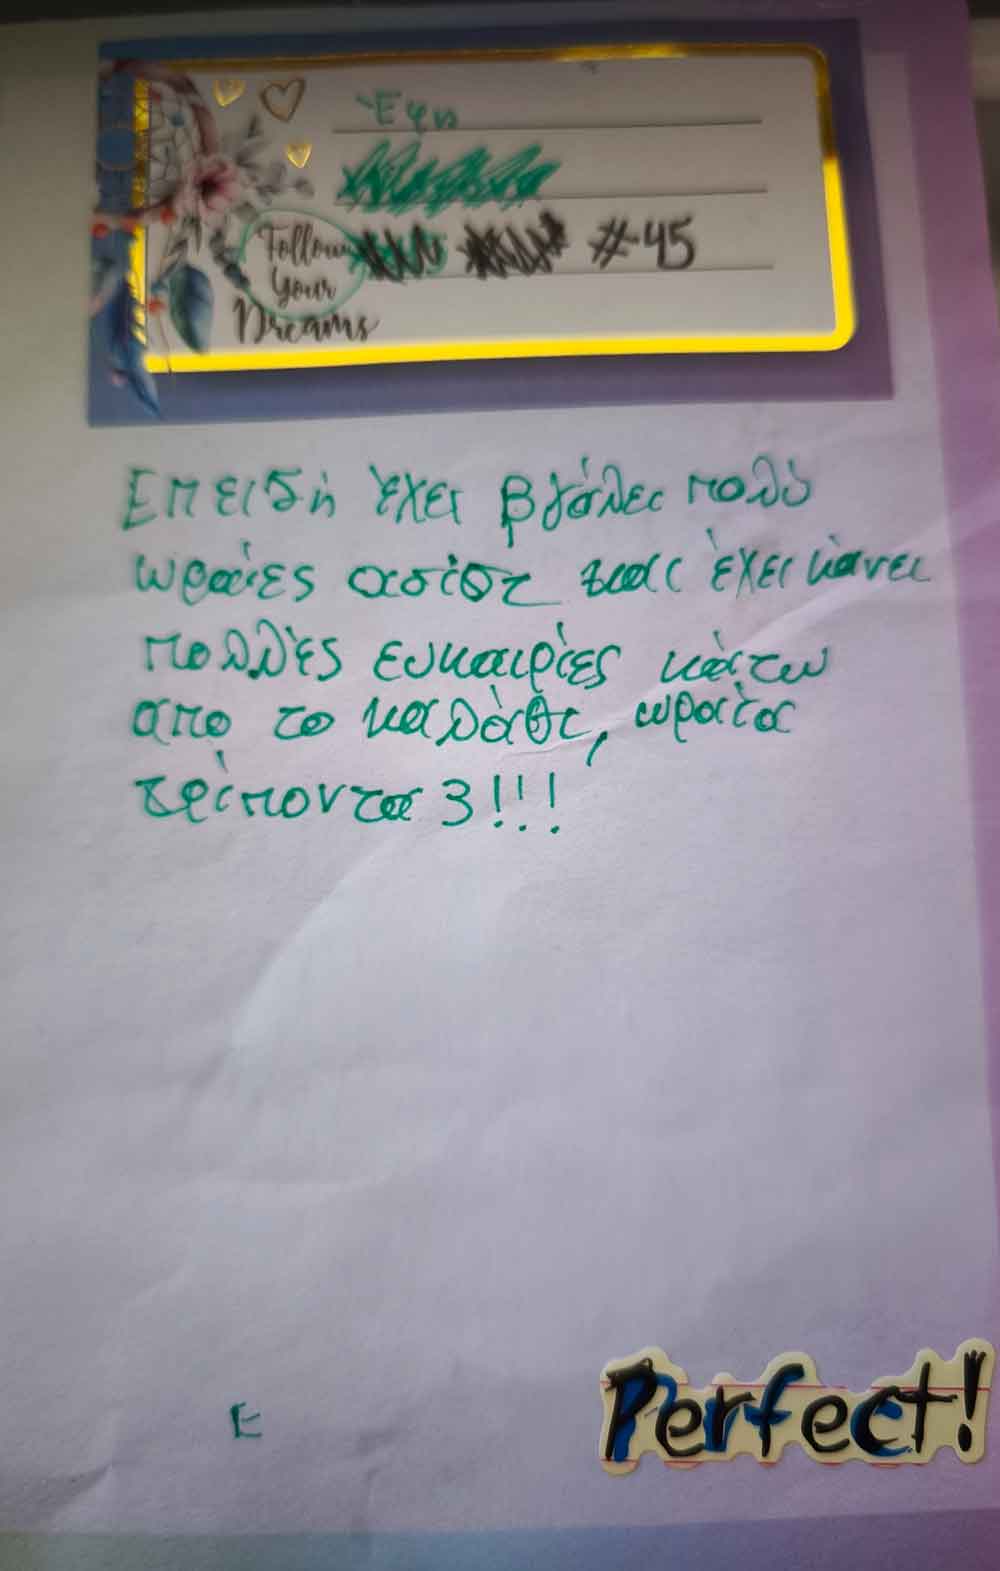 Έφη
#45
Follow
Your
Dreams
Επειδή έχει βγάλει πολύ
ωραίες ασίστ και έχει κάνει
πολλές ευκαιρίες κάτω
απο το καλάθι, ωραία
τρίποντα 3!!!
E
Perfect!